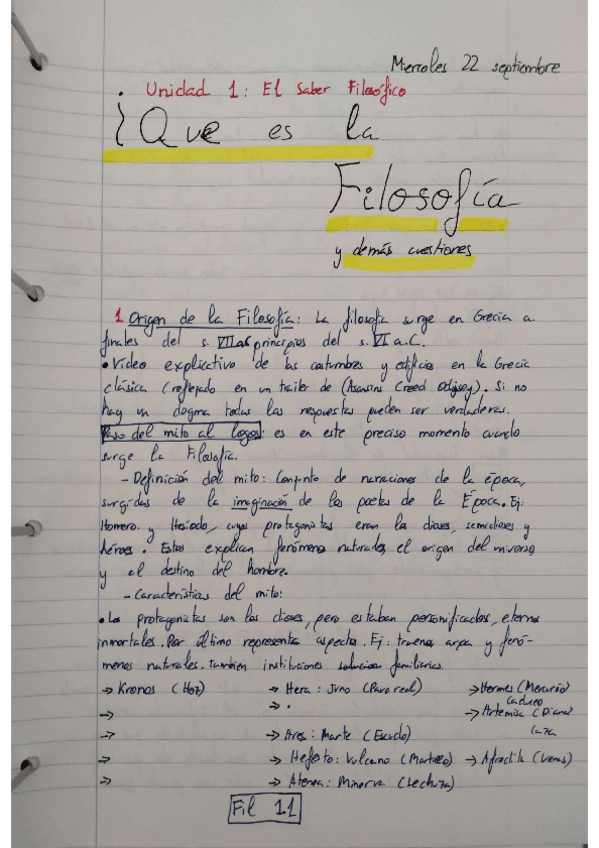 Miercoles 22 septiembre
• Unidad 1: El Saber Filosófico
¿Que es la
Filosofía
y demás cuestiones
1 Origen de la Filosofía: La filosofía surge en Grecia a
finales del s. VII a.C principios del s. VI a.C.
• Video explicativo de las costumbres y edificios en la Grecia
clásica (reflejado en un trailer de (Assasins Creed Odigsey). Si no
hay un dogma todas las respuestas pueden ser verdaderas.
Paso del mito al logos: es en este preciso momento cuando
surge la Filosofía.
- Definición del mito: Conjunto de narraciones de la época,
surgidas de la imaginación de los poetas de la Época. Ej:
Homero. y Hesiodo, cuyos protagonistas eran los dioses, semidioses y
héroes. Estos explican fenómenos naturales, el origen del universo
y el destino del hombre.
- Características del mito:
• Los protagonistas son los dioses, pero estaban personificados, eternos
inmortales. Por último representa aspectos. Ej: truenos, arpa y fenó-
menos naturales. también instituciones familiarias.
→ Kronos (Hoz) → Hera: Juno (Pavo real) → Hermes (Mercurio)
caduceo
→ → • → Artemisa (Diana)
caza
→ → Ares: Marte (Escudo)
→ → Hefesto: Vulcano (Martillo) → Afrodita (Venus)
→ → Atenea: Minerva (Lechuza)
Fil 11